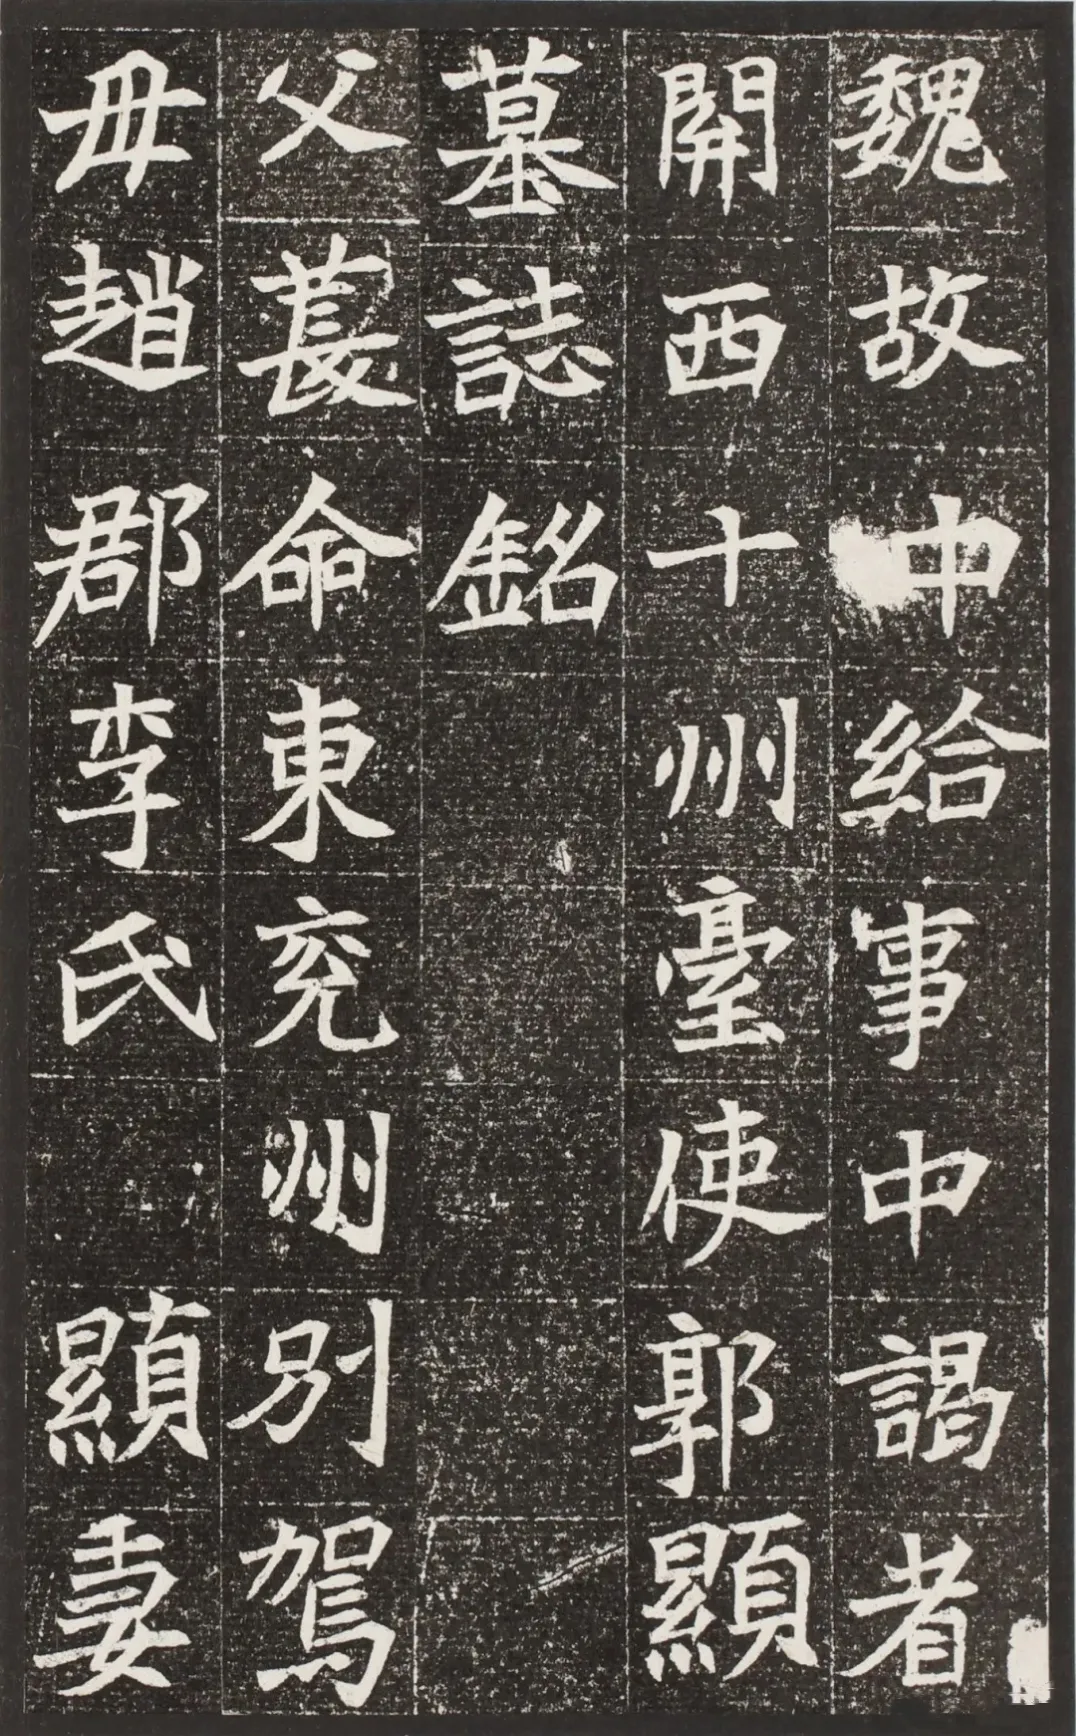 魏故中給事中謁者
開西十州臺使郭顯
墓誌銘
父萇命東兖州別駕
毋趙郡李氏顯妻